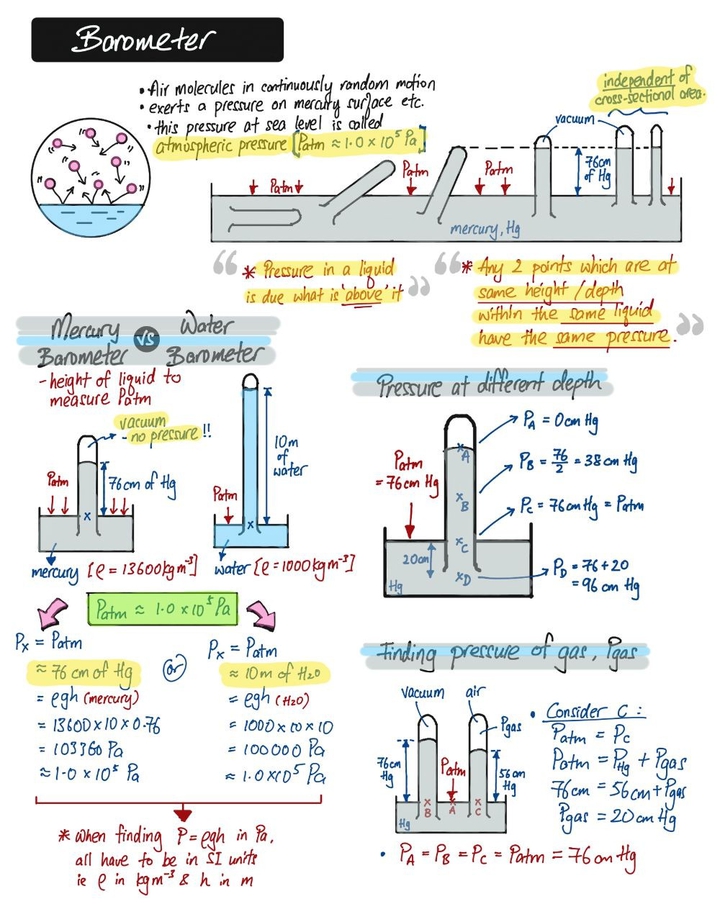 Barometer
• Air molecules in continuously random motion
• exerts a pressure on mercury surface etc.
• this pressure at sea level is called
atmospheric pressure [Patm ≈ 1.0 x 10⁵ Pa]
independent of
cross-sectional area.
vacuum
Patm
Patm
Patm
76cm
of Hg
mercury, Hg
" * Pressure in a liquid
is due what is 'above' it "
" * Any 2 points which are at
same height / depth
within the same liquid
have the same pressure. "
Mercury Barometer vs Water Barometer
- height of liquid to
measure Patm
vacuum
- no pressure !!
Patm
76cm of Hg
x
mercury [ρ = 13600 kgm⁻³]
10m
of
water
Patm
x
water [ρ = 1000 kgm⁻³]
Patm ≈ 1.0 x 10⁵ Pa
Px = Patm
≈ 76 cm of Hg
= ρgh (mercury)
= 13600 x 10 x 0.76
= 103360 Pa
≈ 1.0 x 10⁵ Pa
or
Px = Patm
≈ 10m of H₂O
= ρgh (H₂O)
= 1000 x 10 x 10
= 100000 Pa
≈ 1.0 x 10⁵ Pa
* when finding P = ρgh in Pa,
all have to be in SI units
ie ρ in kgm⁻³ & h in m
Pressure at different depth
Patm
= 76cm Hg
20cm
Hg
x A
x B
x C
x D
PA = 0cm Hg
PB = 76/2 = 38cm Hg
PC = 76cm Hg = Patm
PD = 76+20
= 96cm Hg
Finding pressure of gas, Pgas
vacuum
air
Pgas
76cm
Hg
Patm
56cm
Hg
x B
x A
x C
Hg
• Consider C :
Patm = PC
Patm = PHg + Pgas
76cm = 56cm + Pgas
Pgas = 20cm Hg
• PA = PB = PC = Patm = 76cm Hg